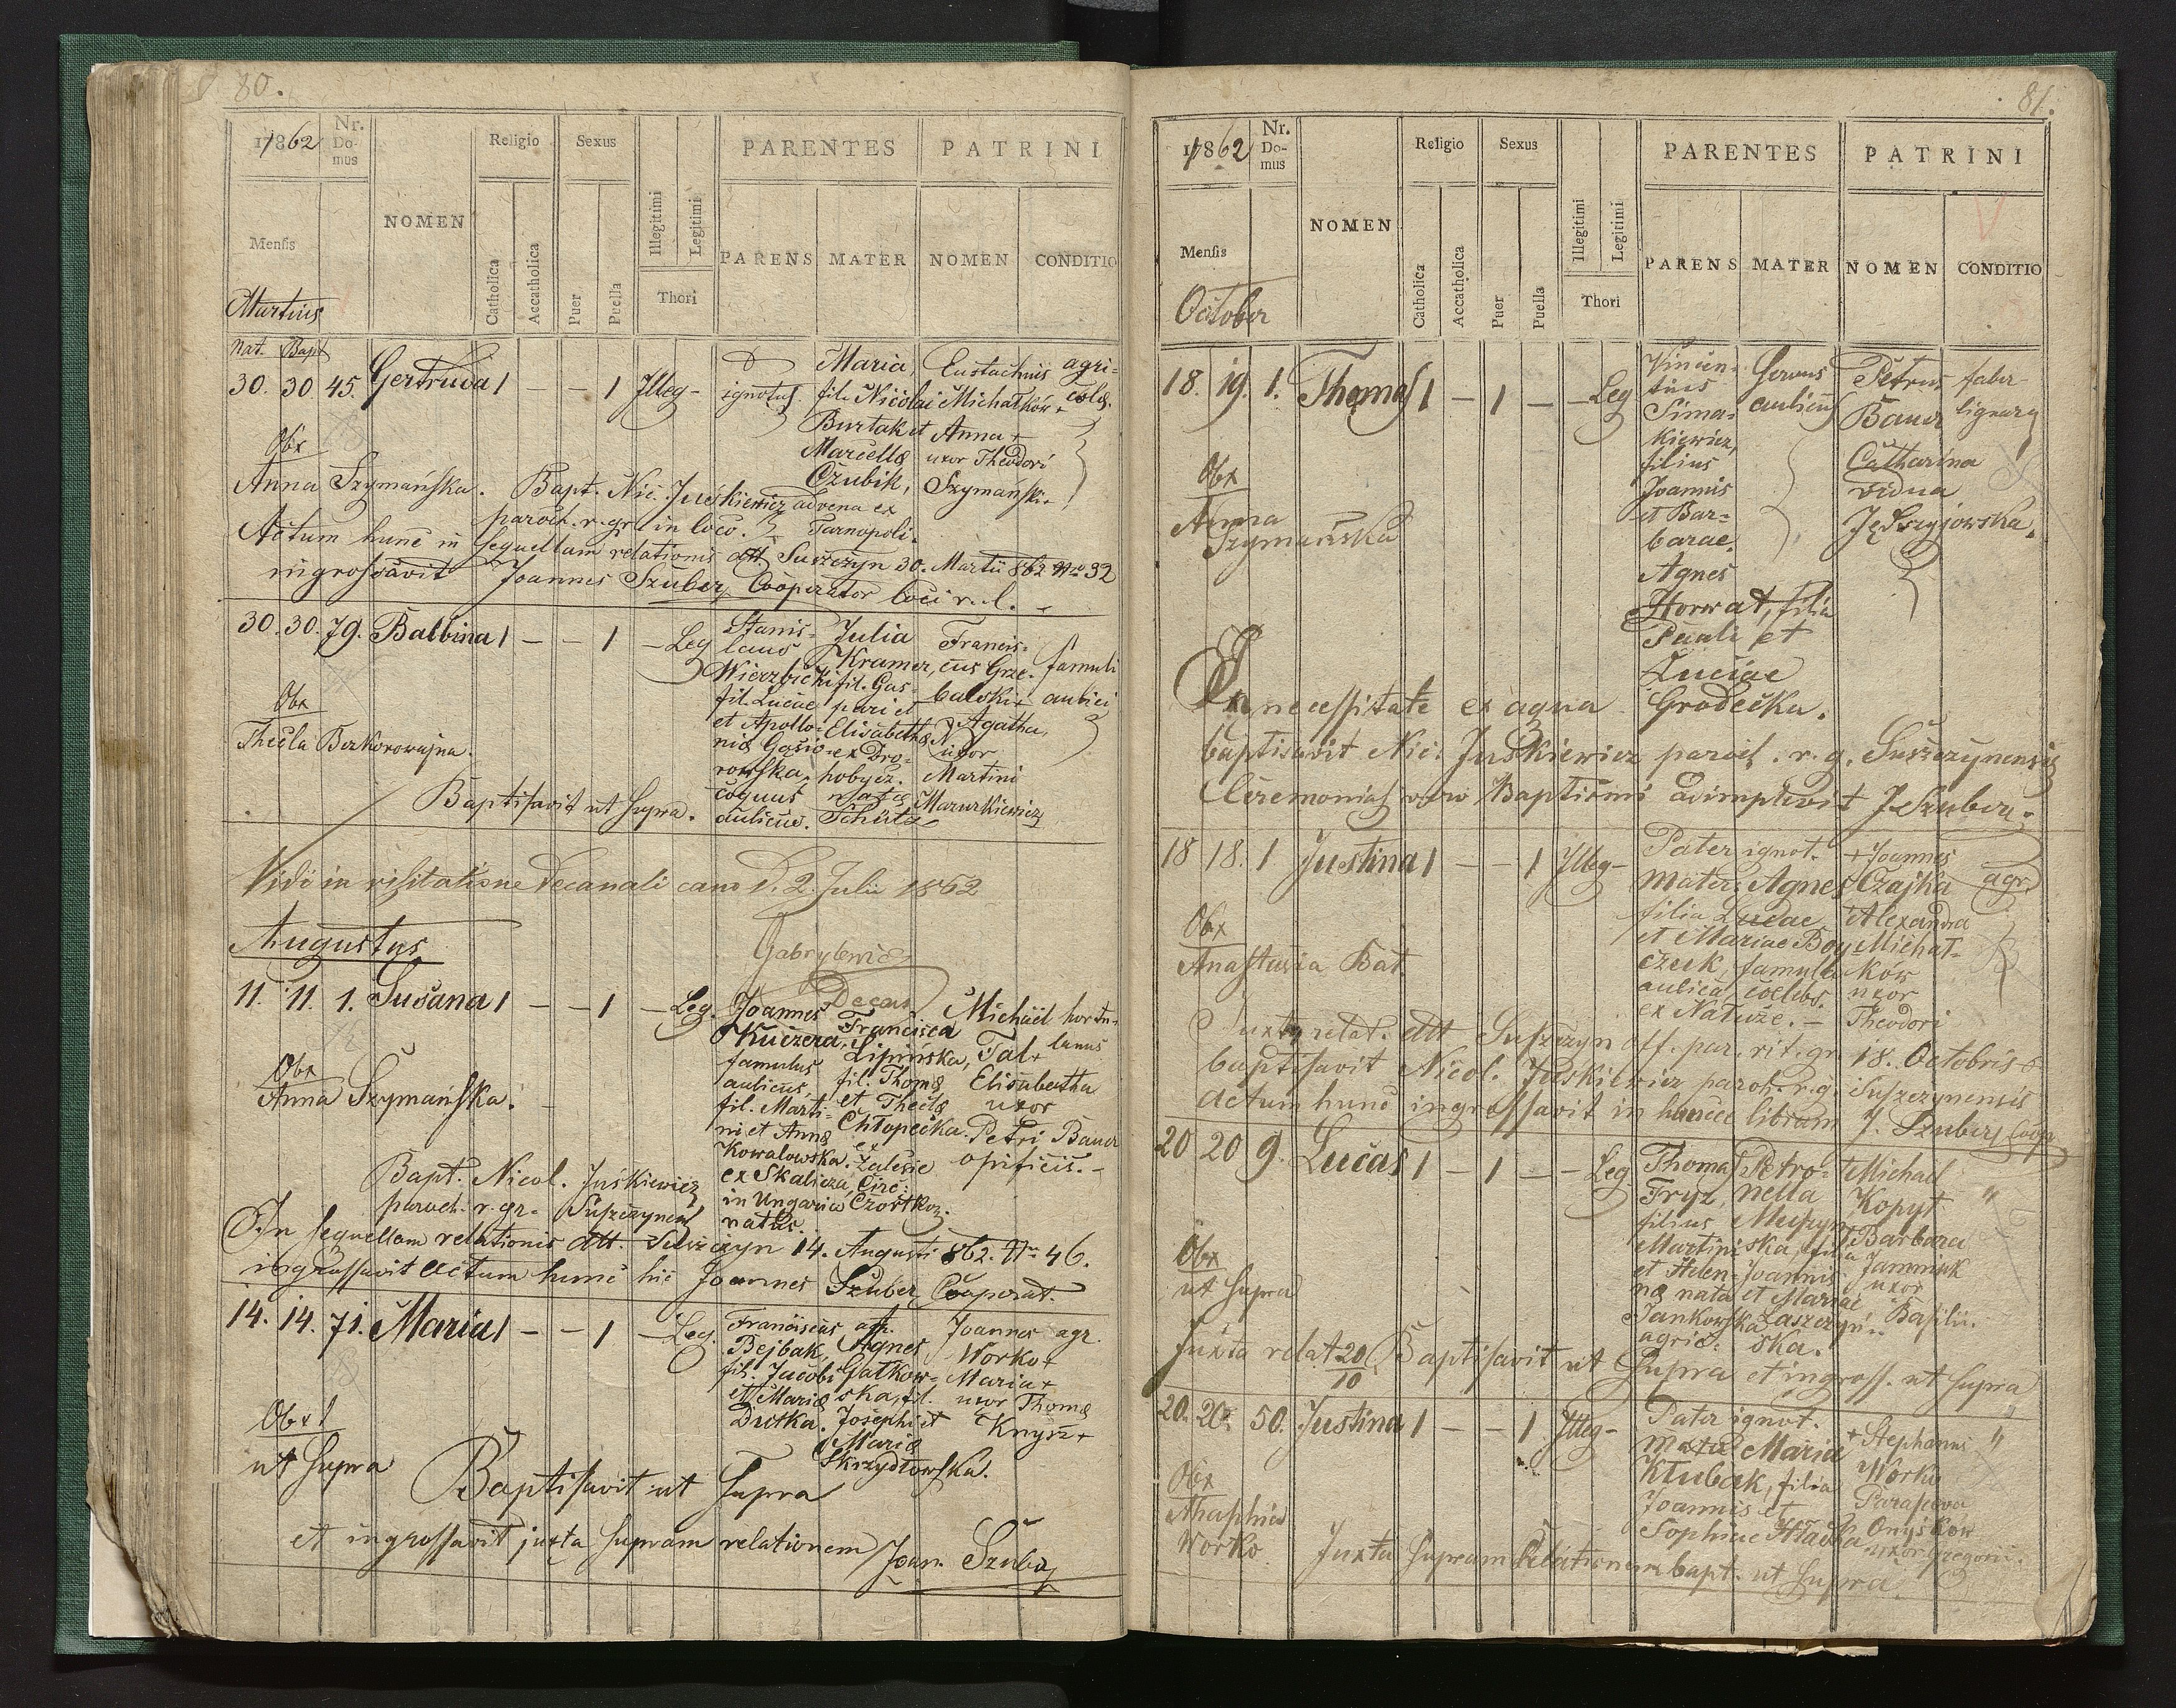 80.
1862 Nr. Do- mus
NOMEN
Religio
Sexus
PARENTES
PATRINI
Mensis
Catholica
Accatholica
Puer
Puella
Illegitimi
Legitimi
Thori
PARENS
MATER
NOMEN
CONDITIO
Martius
Nat. Bapt
30. 30 45. Gertruda 1 — — 1 Illeg -
ignotus.
Maria,
fila Nicolai
Burtak et
Marcellæ
Czubik,
advena ex
Tarnopoli.
Eustachius
Michałków +
Anna +
uxor Theodori
Szymański.
agri-
colæ.
Obx
Anna Szymańska. Bapt. Nic. Juśkiewicz
paroch. r. gr. in loco.
Actum hunc in sequellam relationis dtt Suszczyn 30. Martii 862 Nro 32
ingrossavit Joannes Szuber, Cooperator loci r. l.
30. 30. 79. Balbina 1 — — 1 — Leg
Stanis-
laus
Wierzbicki
fil. Lucæ
et Apollo-
niæ Gosio-
rowska,
coquus
aulicus.
Julia
Kramer,
fil. Gas-
pari et
Elisabethæ
ex Dro-
hobycz.
natæ
Schütz
Francis-
cus Grze-
balski +
Agatha,
uxor
Martini
Mazurkiewicz
famuli
aulici
Obx
Thecla Bezkorowajna.
Baptisavit ut supra.
Vidi in visitatione decanali cano d. 2. Julii 1862
Gabrylewicz
Decan
Augustus
11. 11. 1. Susana 1 — — 1 — Leg.
Joannes
Kuczera,
famulus
aulicus,
fil. Marti-
ni et Annæ
Kowalowska.
ex Skalicza,
in Ungaria
natus.
Francisca
Lipińska,
fil. Thomæ
et Theclæ
Chłopecka.
ex
Zalesie
Circ:
Czortkov.
Michael
Tal +
Elisabetha
uxor
Petri Bauer
opificis. -
hortu-
lanus
Obx
Anna Szymańska.
Bapt. Nicol. Juśkiewicz
paroch. r. gr. Suszczynens
In sequellam relationis dtt. Suszczyn 14. Augusti 862. Nro 46.
ingrossavit actum hunc hic Joannes Szuber Cooperat.
14. 14. 71. Maria 1 — — 1 — Leg.
Franciscus agr.
Bejbak,
fil. Jacobi
et Mariæ
Dutka.
Agnes
Gatkow-
ska, fil.
Josephi et
Mariæ
Skrzydłowska.
Joannes agr.
Worko +
Maria +
uxor Thomæ
Knysz +
Obx
ut supra
Baptisavit ut supra
et ingrossavit juxta supram relationem Joan. Szuber
81.
1862 Nr. Do- mus
NOMEN
Religio
Sexus
PARENTES
PATRINI
Mensis
Catholica
Accatholica
Puer
Puella
Illegitimi
Legitimi
Thori
PARENS
MATER
NOMEN
CONDITIO
October
18. 19. 1. Thomas 1 — 1 — — Leg
Vincen-
tius
Sima-
kiewicz,
filius
Joannis
et Bar-
barae.
Agnes
Horwat, filia
Pauli et
Luciae
Grodecka.
servus
aulicus
Petrus
Bauer
Catharina
vidua
Jędrzyjowska.
faber
lignary
Obx
Anna
Szymańska
In necessitate ex aqua
baptisavit Nic. Juskiewicz paroch. r. g. Suszczynensis
Ceremonias vero Baptismi adimplevit J. Szuber.
18 18. 1 Justina 1 — — 1 Illeg -
Pater ignot.
Mater Agnes
filia Lucae
et Mariae Boy-
czuk, famula
aulica coelebs.
ex Natuze. -
+ Joannes
Czajka
+ Alexandra
Michał-
ków
uxor
Theodori
agr.
Obx
Anastasia Bat.
Juxta relat. dtt Suszczyn off. par. rit. gr. 18. Octobris
baptisavit Nicol. Juskiewicz paroh. r. g. Suszczynensis
actum hunc ingrossavit in hunce librum J. Szuber, Coop.
20 20 9. Lucas 1 — 1 — — Leg.
Thomas
Fryz,
filius
Martini
et Helen-
næ nata
Jankowska
agric.
Petro-
nella
Muszyń-
ska, filia
Joannis
et Mariae
Zaszczyń-
ska.
+ Michael
Kopyt
+ Barbara
Jamniuk
uxor
Basilii.
"
Obx
ut supra
Juxta relat 20/10 Baptisavit ut supra et ingross. ut supra
20. 20. 50. Justina 1 — — 1 Illeg -
Pater ignot.
Mater Maria
Kłubak, filia
Joannis et
Sophiae Hławka
+ Stephanus
Worko
Parasceva
Onyśków
uxor Gregorii.
"
Obx
Ahaphia
Worko
Juxta supram relationem bapt. ut supra